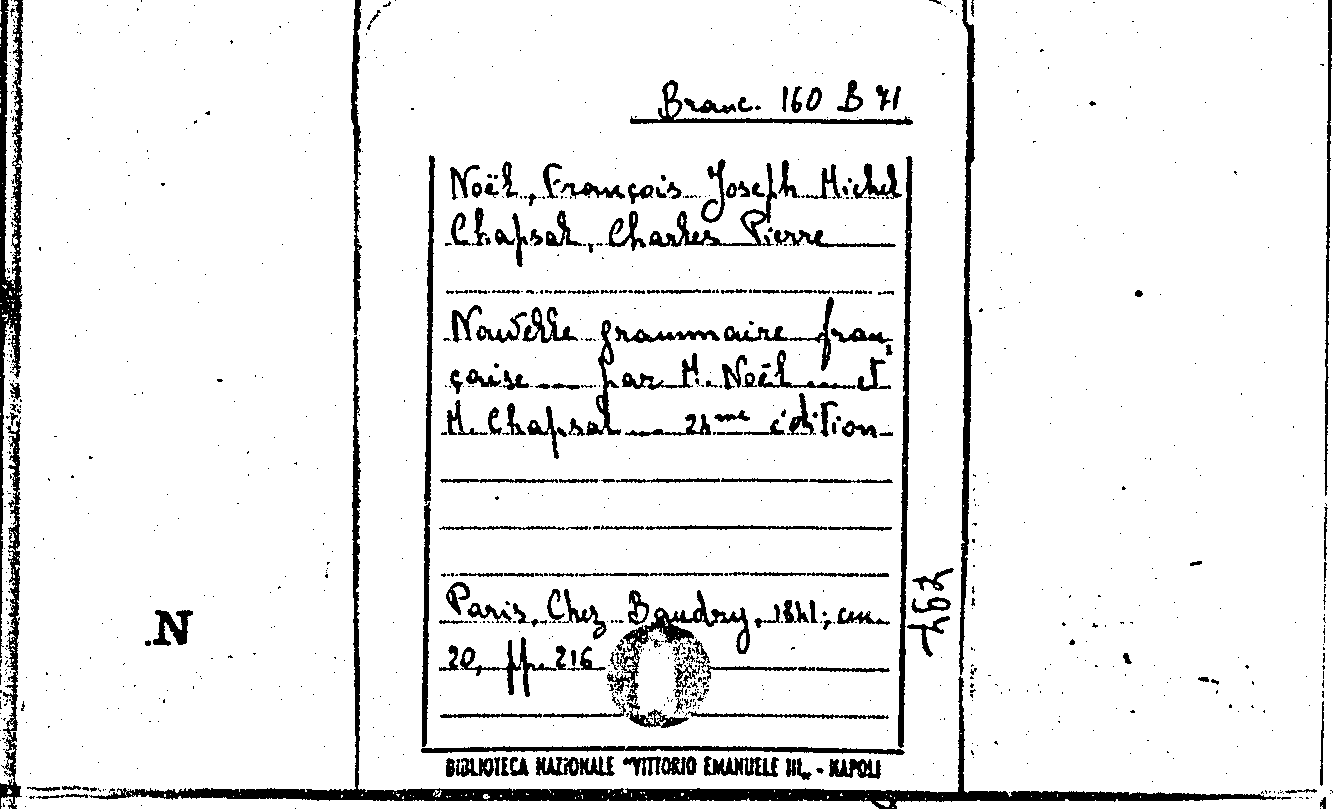 Branc. 160 B 71
Noël, François Joseph Michel
Chapsal, Charles Pierre
Nouvelle grammaire fran,
çaise ... par M. Noël ... et
M. Chapsal ... 24me édition
Paris, Chez Baudry, 1841; cm.
20, pp. 216
BIBLIOTECA NAZIONALE "VITTORIO EMANUELE III„ - NAPOLI
.N